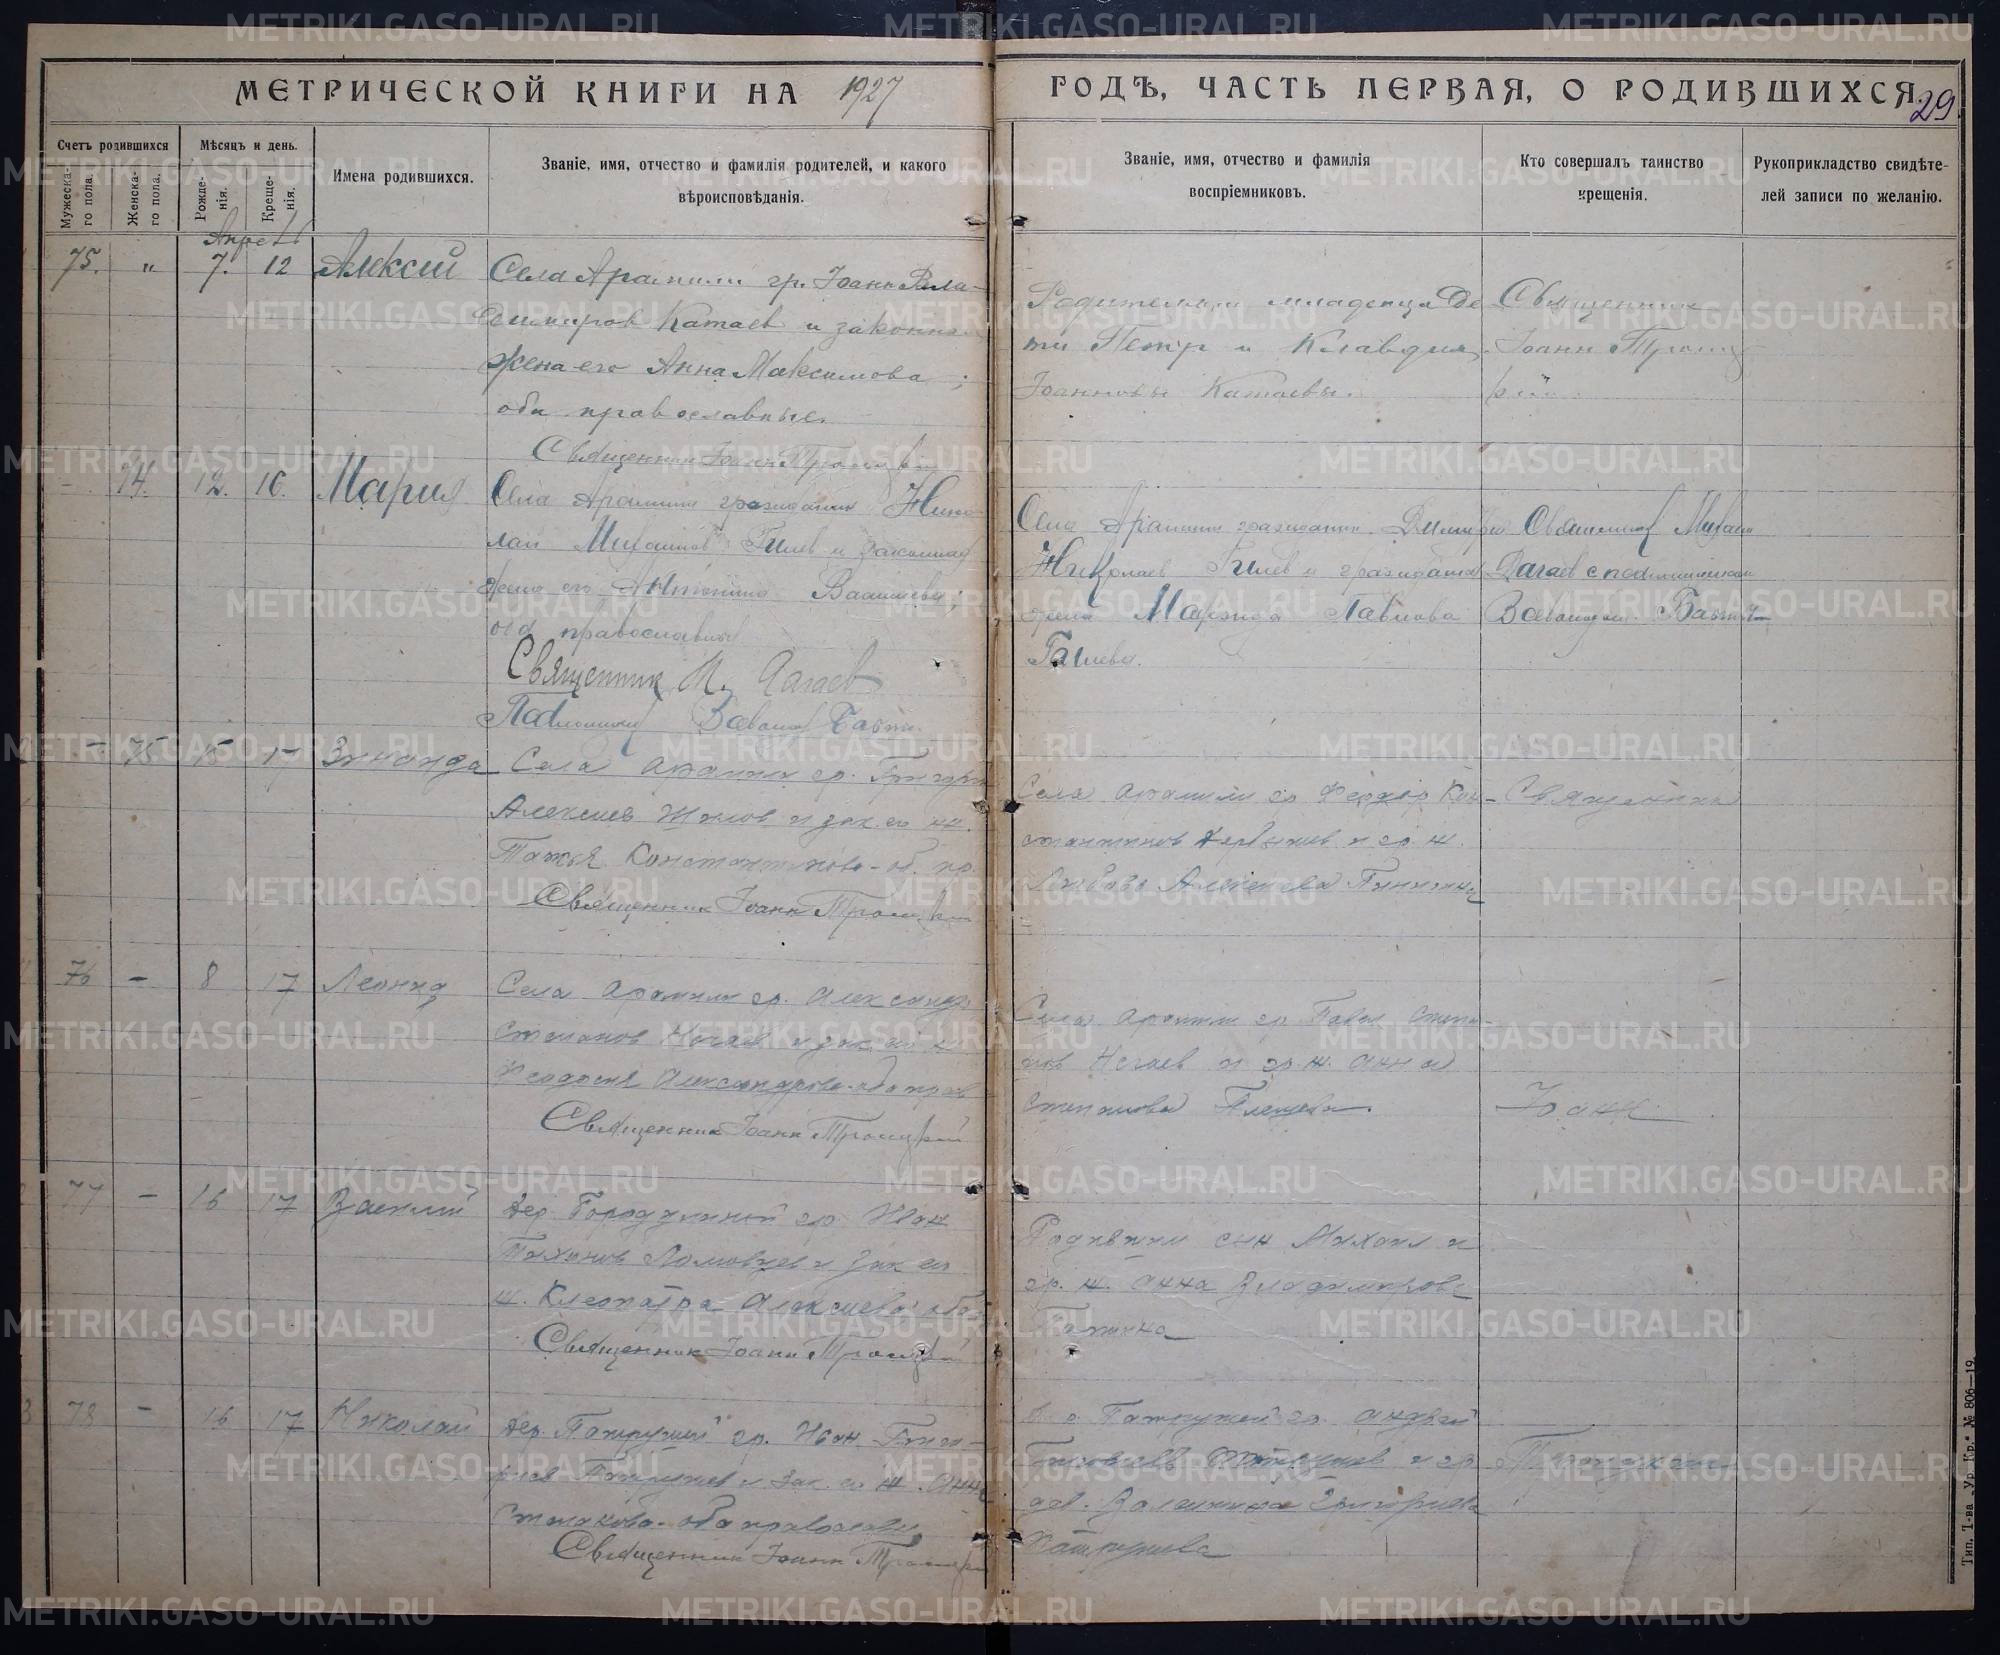 МЕТРИЧЕСКОЙ КНИГИ НА 1927 ГОДЪ, ЧАСТЬ ПЕРВАЯ, О РОДИВШИХСЯ.
29
Счетъ родившихся
Мужеска-го пола.
Женска-го пола.
Мѣсяцъ и день.
Рожде-нія.
Креще-нія.
Имена родившихся.
Званіе, имя, отчество и фамилія родителей, и какого
вѣроисповѣданія.
Званіе, имя, отчество и фамилія
воспріемниковъ.
Кто совершалъ таинство
крещенія.
Рукоприкладство свидѣте-
лей записи по желанію.
75. " 7. 12 Алексей
Села Арамили гр. Іоанн Вла-
димиров Катаев и законная
жена его Анна Максимова;
оба православные.
Священник Іоанн Троицкий
Родители младенца де
ти Петр и Клавдия
Іоанновы Катаевы.
Священник
Іоанн Троиц
кий
74. 12. 16. Мария
Села Арамили гражданин Нико-
лай Михаилов Гилев и законная
жена его Антонина Васильева;
оба православные
Священник М. Дагаев
Села Арамили гражданин Димитрий
Николаев Гилев и гражданка
Марфа Павлова
Гилева.
Священник Михаил
Дагаев
- 75 15 17 Зинаида
Села Арамили гр. Григорий
Алексиев Шилов и зак. его ж.
Татья Константинова - об. пр.
Священник Іоанн Троицкий
Села Арамили гр Феодор Кон-
стантинов и гр. ж.
Любовь Алексиева
Священник
76 - 8 17 Леонид
Села Арамили гр. Александр
Степанов Нечаев и зак. его ж
Феодосия Александрова - оба прав
Священник Іоанн Троицкий
Села Арамили гр Павел Степа-
нов Нечаев и гр. ж. Анна
Степанова
Іоанн
77 - 16 17 Василий
Дер. гр. Иван
Тихонов и зак его
ж. Клеопатра Алексиева оба
Священник Іоанн Троицкий
сын Михаил и
гр. ж. Анна Владимирова
78 - 16 17 Николай
Дер. Патрушей гр. Иван Григо-
риев Патрушев и зак. его ж. Анна
Степанова - оба православн
Священник Іоанн Троицкий
Патрушей гр. Андрей
Патрушев и гр
дев. Валентина Григориева
Патрушева
Троицкий
Тип. Т-ва „Ур. Кр." № 806—19.
METRIKI.GASO-URAL.RU